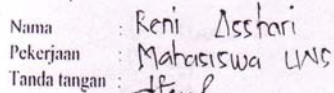 Nama : Reni Asshari
Pekerjaan : Mahasiswa UNS
Tanda tangan :